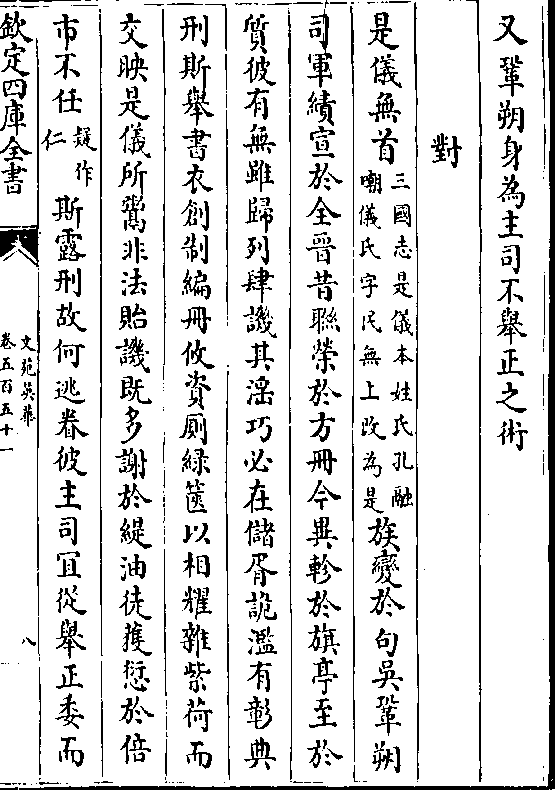 又鞏朔身為主司不舉正之術
對
是儀無首三國志是儀本姓氏孔融嘲儀氏字民無上改為是族變於句吳鞏朔
司軍績宣於全晉昔聯榮於方冊今異軫於旗亭至於
質彼有無雖歸列肆譏其淫巧必在儲胥詭濫有彰典
刑斯舉書衣創制編冊攸資廁緑篋以相耀雜紫荷而
交映是儀所鬻非法貽譏既多謝於緹油徒獲愆於倍
市不任疑作仁斯露刑故何逃眷彼主司宜從舉正委而
欽定四庫全書
文苑英華
卷五百五十一
八